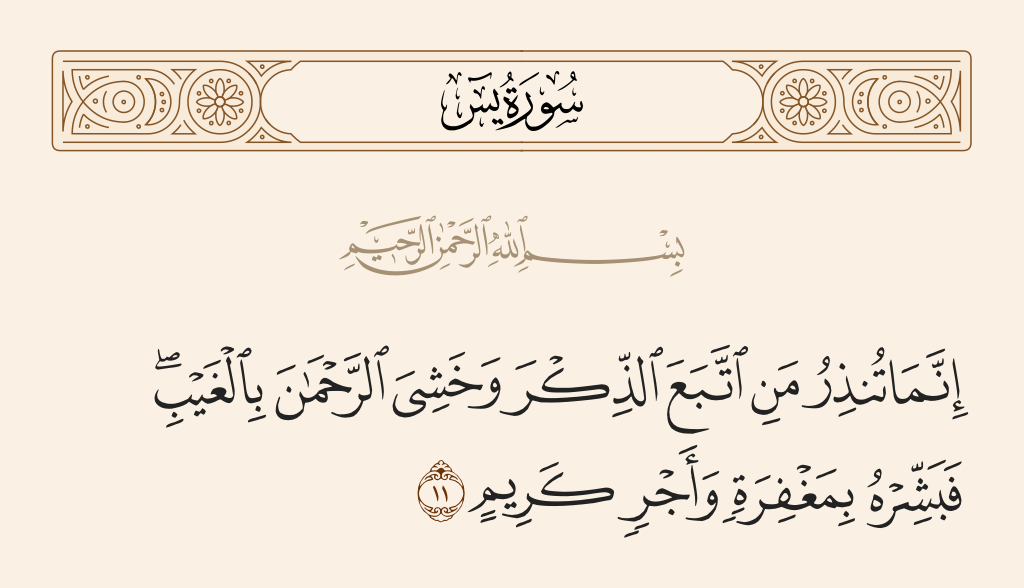 سُورَةُ يسٓ
بِسْمِ ٱللَّهِ ٱلرَّحْمَٰنِ ٱلرَّحِيمِ
إِنَّمَا تُنذِرُ مَنِ ٱتَّبَعَ ٱلذِّكْرَ وَخَشِىَ ٱلرَّحْمَٰنَ بِٱلْغَيْبِ ۖ
فَبَشِّرْهُ بِمَغْفِرَةٍ وَأَجْرٍ كَرِيمٍ ١١